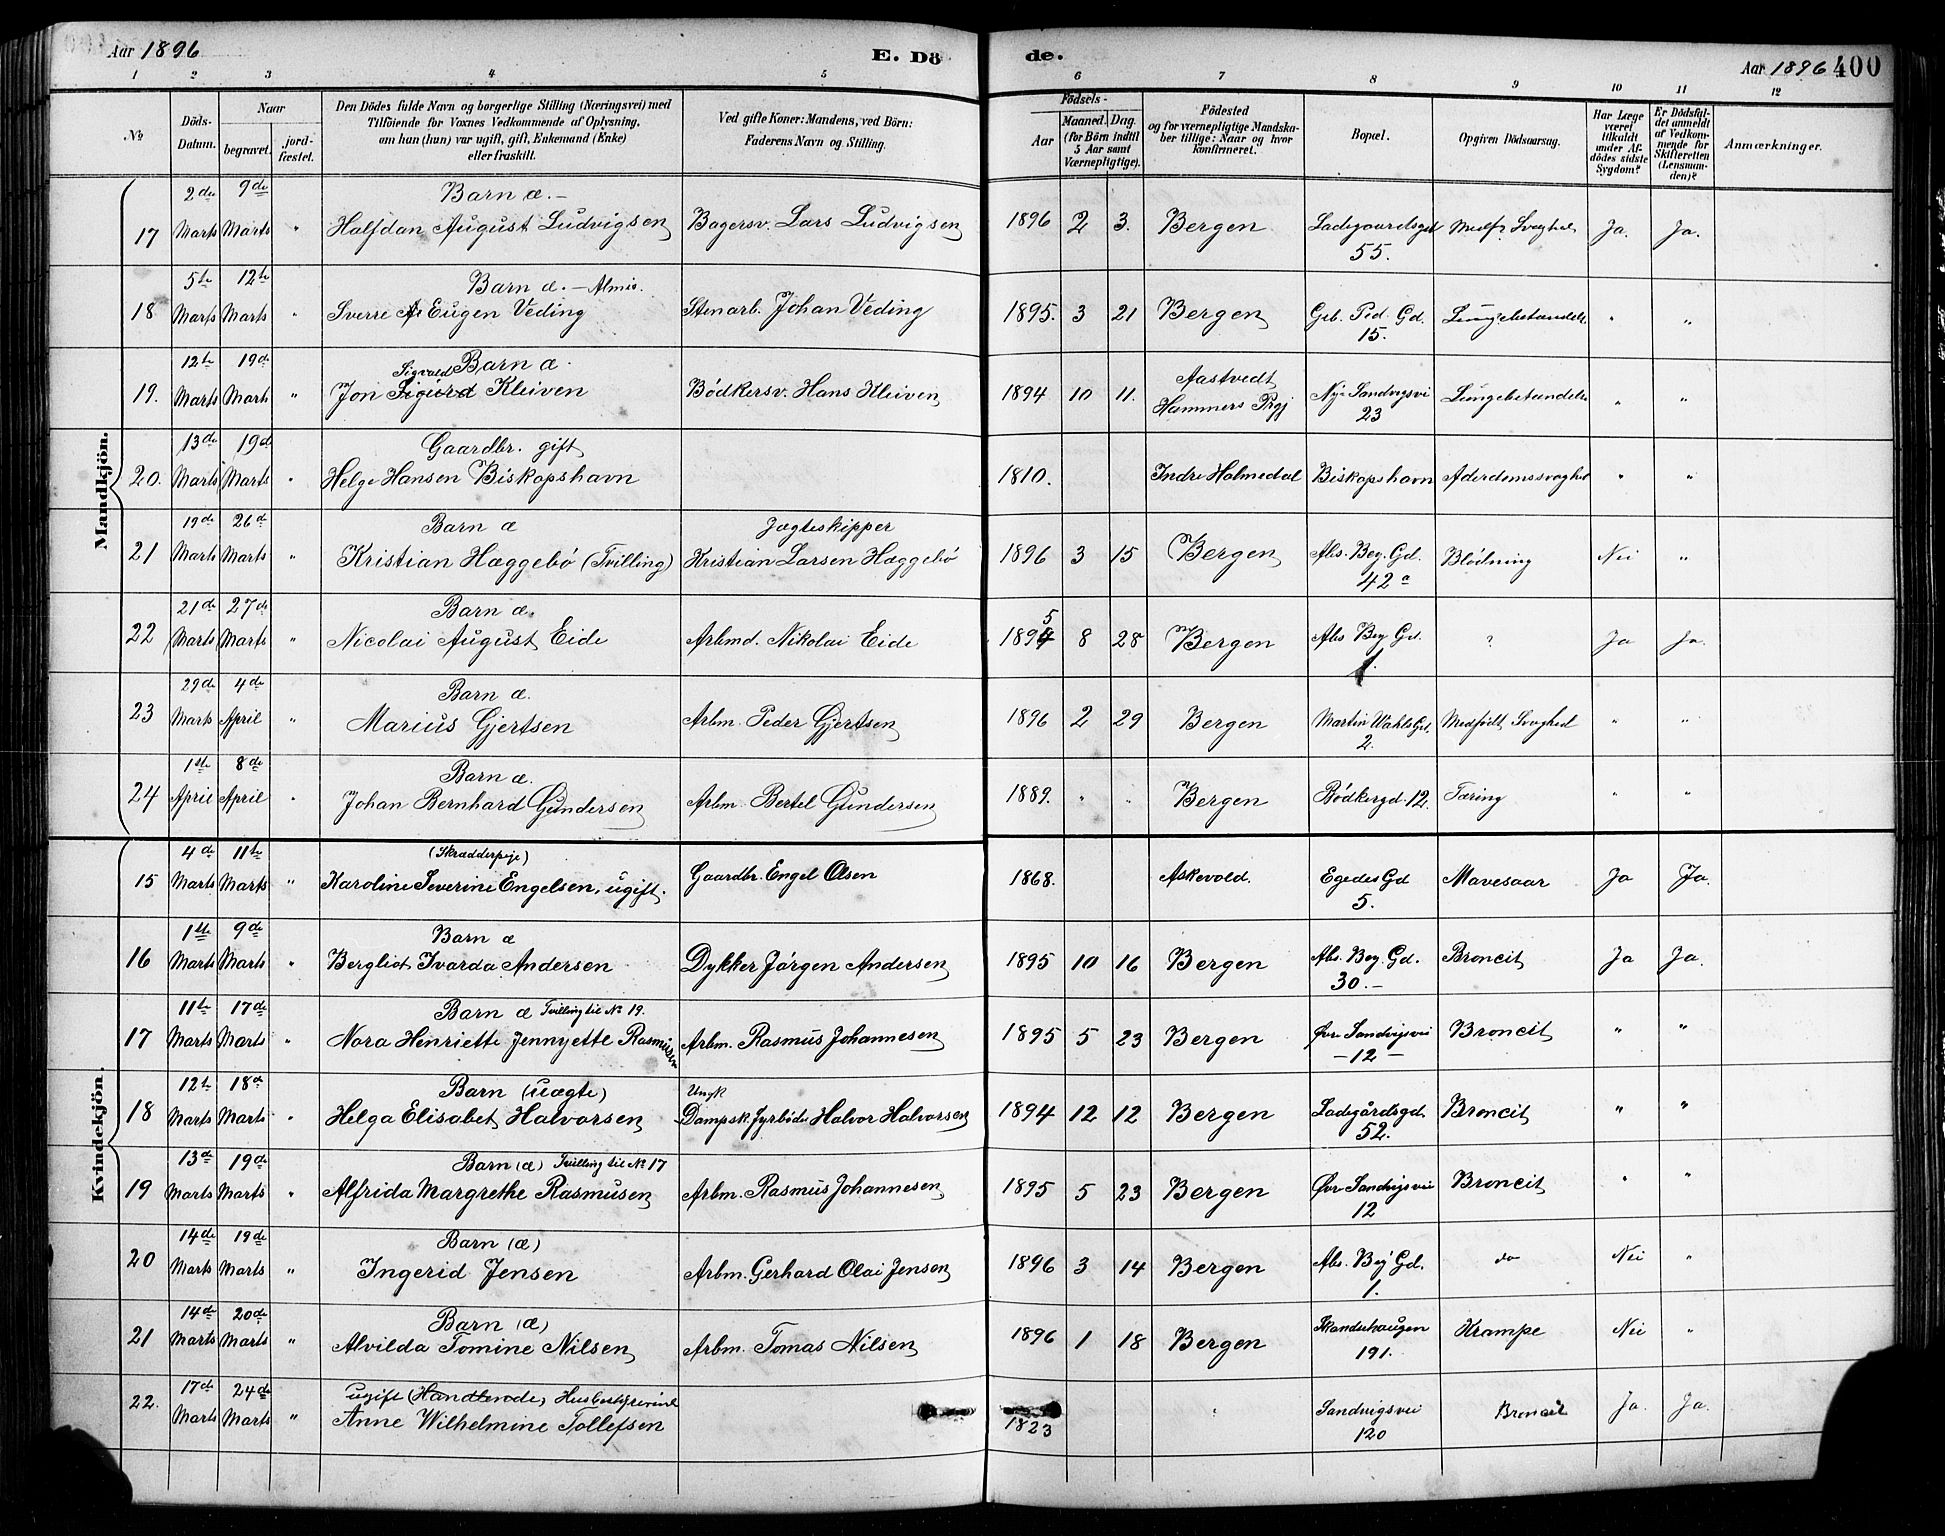 Aar 1896 E. Döde. Aar 1896 400
1 2 3 4 5 6 7 8 9 10 11 12
No
Döds-Datum.
Naar begravet. jordfæstet.
Den Dödes fulde Navn og borgerlige Stilling (Næringsvei) med
Tilföiende for Voxnes Vedkommende af Oplysning,
om han (hun) var ugift, gift, Enkemand (Enke)
eller fraskilt.
Ved gifte Koner: Mandens, ved Börn:
Faderens Navn og Stilling.
Födsels-
Aar Maaned. Dag.
(for Börn indtil 5 Aar samt Værnepligtige).
Födested
og for værnepligtige Mandskaber tillige: Naar og hvor konfirmeret.
Bopæl.
Opgiven Dödsaarsag.
Har Læge været tilkaldt under Afdödes sidste Sygdom?
Er Dödsfaldet anmeldt af Vedkommende for Skifteretten (Lensmanden)?
Anmærkninger.
Mandkjön.
2de 9de Barn æ.-
17 Marts Marts " Halfdan August Ludvigsen Bagersv. Lars Ludvigsen 1896 2 3. Bergen Ladegaardsgd 55. Medf. Svaghed Ja. Ja.
5te 12te Barn æ. - Almis.
18 Marts Marts " Sverre Eugen Veding Stenarb. Johan Veding 1895. 3 21 Bergen Geb. Ped. Gd. 15. Lungebetændelse " "
12te 19de Sigvald Barn æ.
19. Marts Marts " Jon Sigurd Kleiven Bödkersv. Hans Kleiven 1894 10 11. Aastvedt Hammers Prgj Nye Sandvigsvei 23 Lungebetændelse " "
13de 19de Gaardbr. gift
20. Marts Marts " Helge Hansen Biskopshavn 1810. Indre Holmedal Biskopshavn Alderdomssvaghed " "
19de 26de Barn æ Jægteskipper
21 Marts Marts " Kristian Hæggebö (Tvilling) Kristian Larsen Hæggebö 1896 3 15 Bergen Abs. Bey. Gd. 42a Blödning Nei "
21de 27de Barn æ.
22 Marts Marts " Nicolai August Eide Arbmd. Nikolai Eide 1895 8 28 Bergen Abs Bey Gd. 1. ? Ja Ja.
29de 4de Barn æ.
23 Marts April " Marius Gjertsen Arbm. Peder Gjertsen 1896 2 29 Bergen Martin Vahls Gd. 2. Medfödt Svaghed " "
1ste 8de Barn æ.
24 April April " Johan Bernhard Gundersen Arbm. Bertel Gundersen 1889. " " Bergen Bödkergd. 12. Tæring " "
Kvindekjön.
4de 11te (Skrædderpige)
15 Marts Marts " Karoline Severine Engelsen, ugift. Gaardbr. Engel Olsen 1868. Askevold. Egedes Gd 5. Mavesaar Ja Ja.
1ste 9de Barn æ
16 Marts Marts " Bergliot Ivarda Andersen Dykker Jörgen Andersen 1895 10 16 Bergen Abs. Bey. Gd. 30.- Broncit Ja Ja.
11te 17de Barn æ Tvilling til No 19.
17 Marts Marts " Nora Henriette Jennyette Rasmussen Arbm. Rasmus Johannesen 1895 5 23 Bergen Øvre Sandvigsvei -12- Broncit " "
12te 18de Barn (uægte) Ungk
18 Marts Marts " Helga Elisabet Halvorsen Dampsk. Fyrböder Halvor Halvorsen 1894 12 12 Bergen Ladegårdsgd. 52. Broncit " "
13de 19de Barn (æ) Tvilling til No 17
19 Marts Marts " Alfrida Margrethe Rasmusen Arbm. Rasmus Johannesen 1895 5 23 Bergen Øvr Sandvigsvei 12 Broncit " "
14de 19de Barn (æ)
20 Marts Marts " Ingerid Jensen Arbm. Gerhard Olai Jensen 1896 3 14 Bergen Abs. Bey Gd. 1. do Nei "
14de 20de Barn (æ)
21 Marts Marts " Alvilda Tomine Nilsen Arbm. Tomas Nilsen 1896 1 18 Bergen Skandsehaugen 191. Krampe Nei "
17de 24de ugift (Handlende) Husbestyrerinde
22. Marts Marts " Anne Wilhelmine Tollefsen 1823 " Sandvigsvei 120 Broncit Ja. Ja.